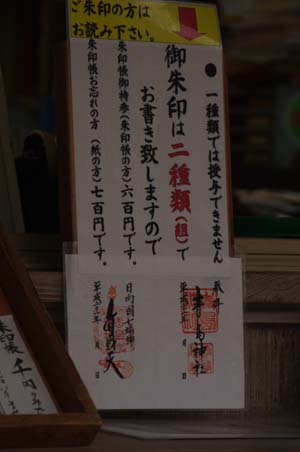 ご朱印の方は
お読み下さい。
● 一種類では授与できません
御朱印は二種類(組)で
お書き致しますので
朱印帳御持参(朱印帳の方)六百円です。
朱印帳お忘れの方(紙の方)七百円です。
奉拝
青島神社
平成二十 年 月 日
日向国七福神
平成二十 年 月 日
朱印帳 千円